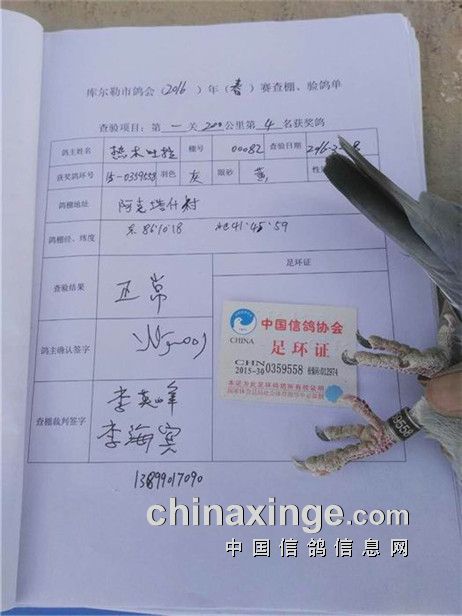 库尔勒市鸽会（2016）年（春）赛查棚、验鸽单
查验项目：第一关200公里第4名获奖鸽
鸽主姓名 热木吐拉 棚号 00082 查验日期
获奖鸽环号 15-0359558 羽色 灰 眼砂 黄
鸽棚地址 阿克塔什村
鸽棚经、纬度 东86°10'18 北41°45'59
足环证
查验结果 正常
鸽主确认签字
查棚裁判签字 李英峰
李海宾
13899017090
中国信鸽协会
足环证
CHINA
CHN
2015-30 0359558
chinaxinge.com
中国信鸽信息网